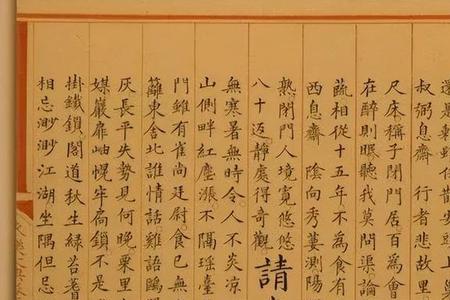 叔弼息齋 行者悲故里
尺床稱子閉門居百為會
在醉則眠聽我莫問渠論
蔬相從十五年不為食有
西息齋 陰向秀蔞測陽
熟閉門人境寬悠悠
八十返靜處得奇觀
請
無寒暑無時令人不炎涼
山側畔紅塵漲不隔瑤臺
門雖有雀尚廷尉食已無
籬東舍北誰情話雞語鷗
灰長平失勢見何晚栗里
媒巖扉岫幌牢扃鎖不是
掛鐵鎖閣道秋生綠苔著
相忘渺渺江湖坐隅但忌